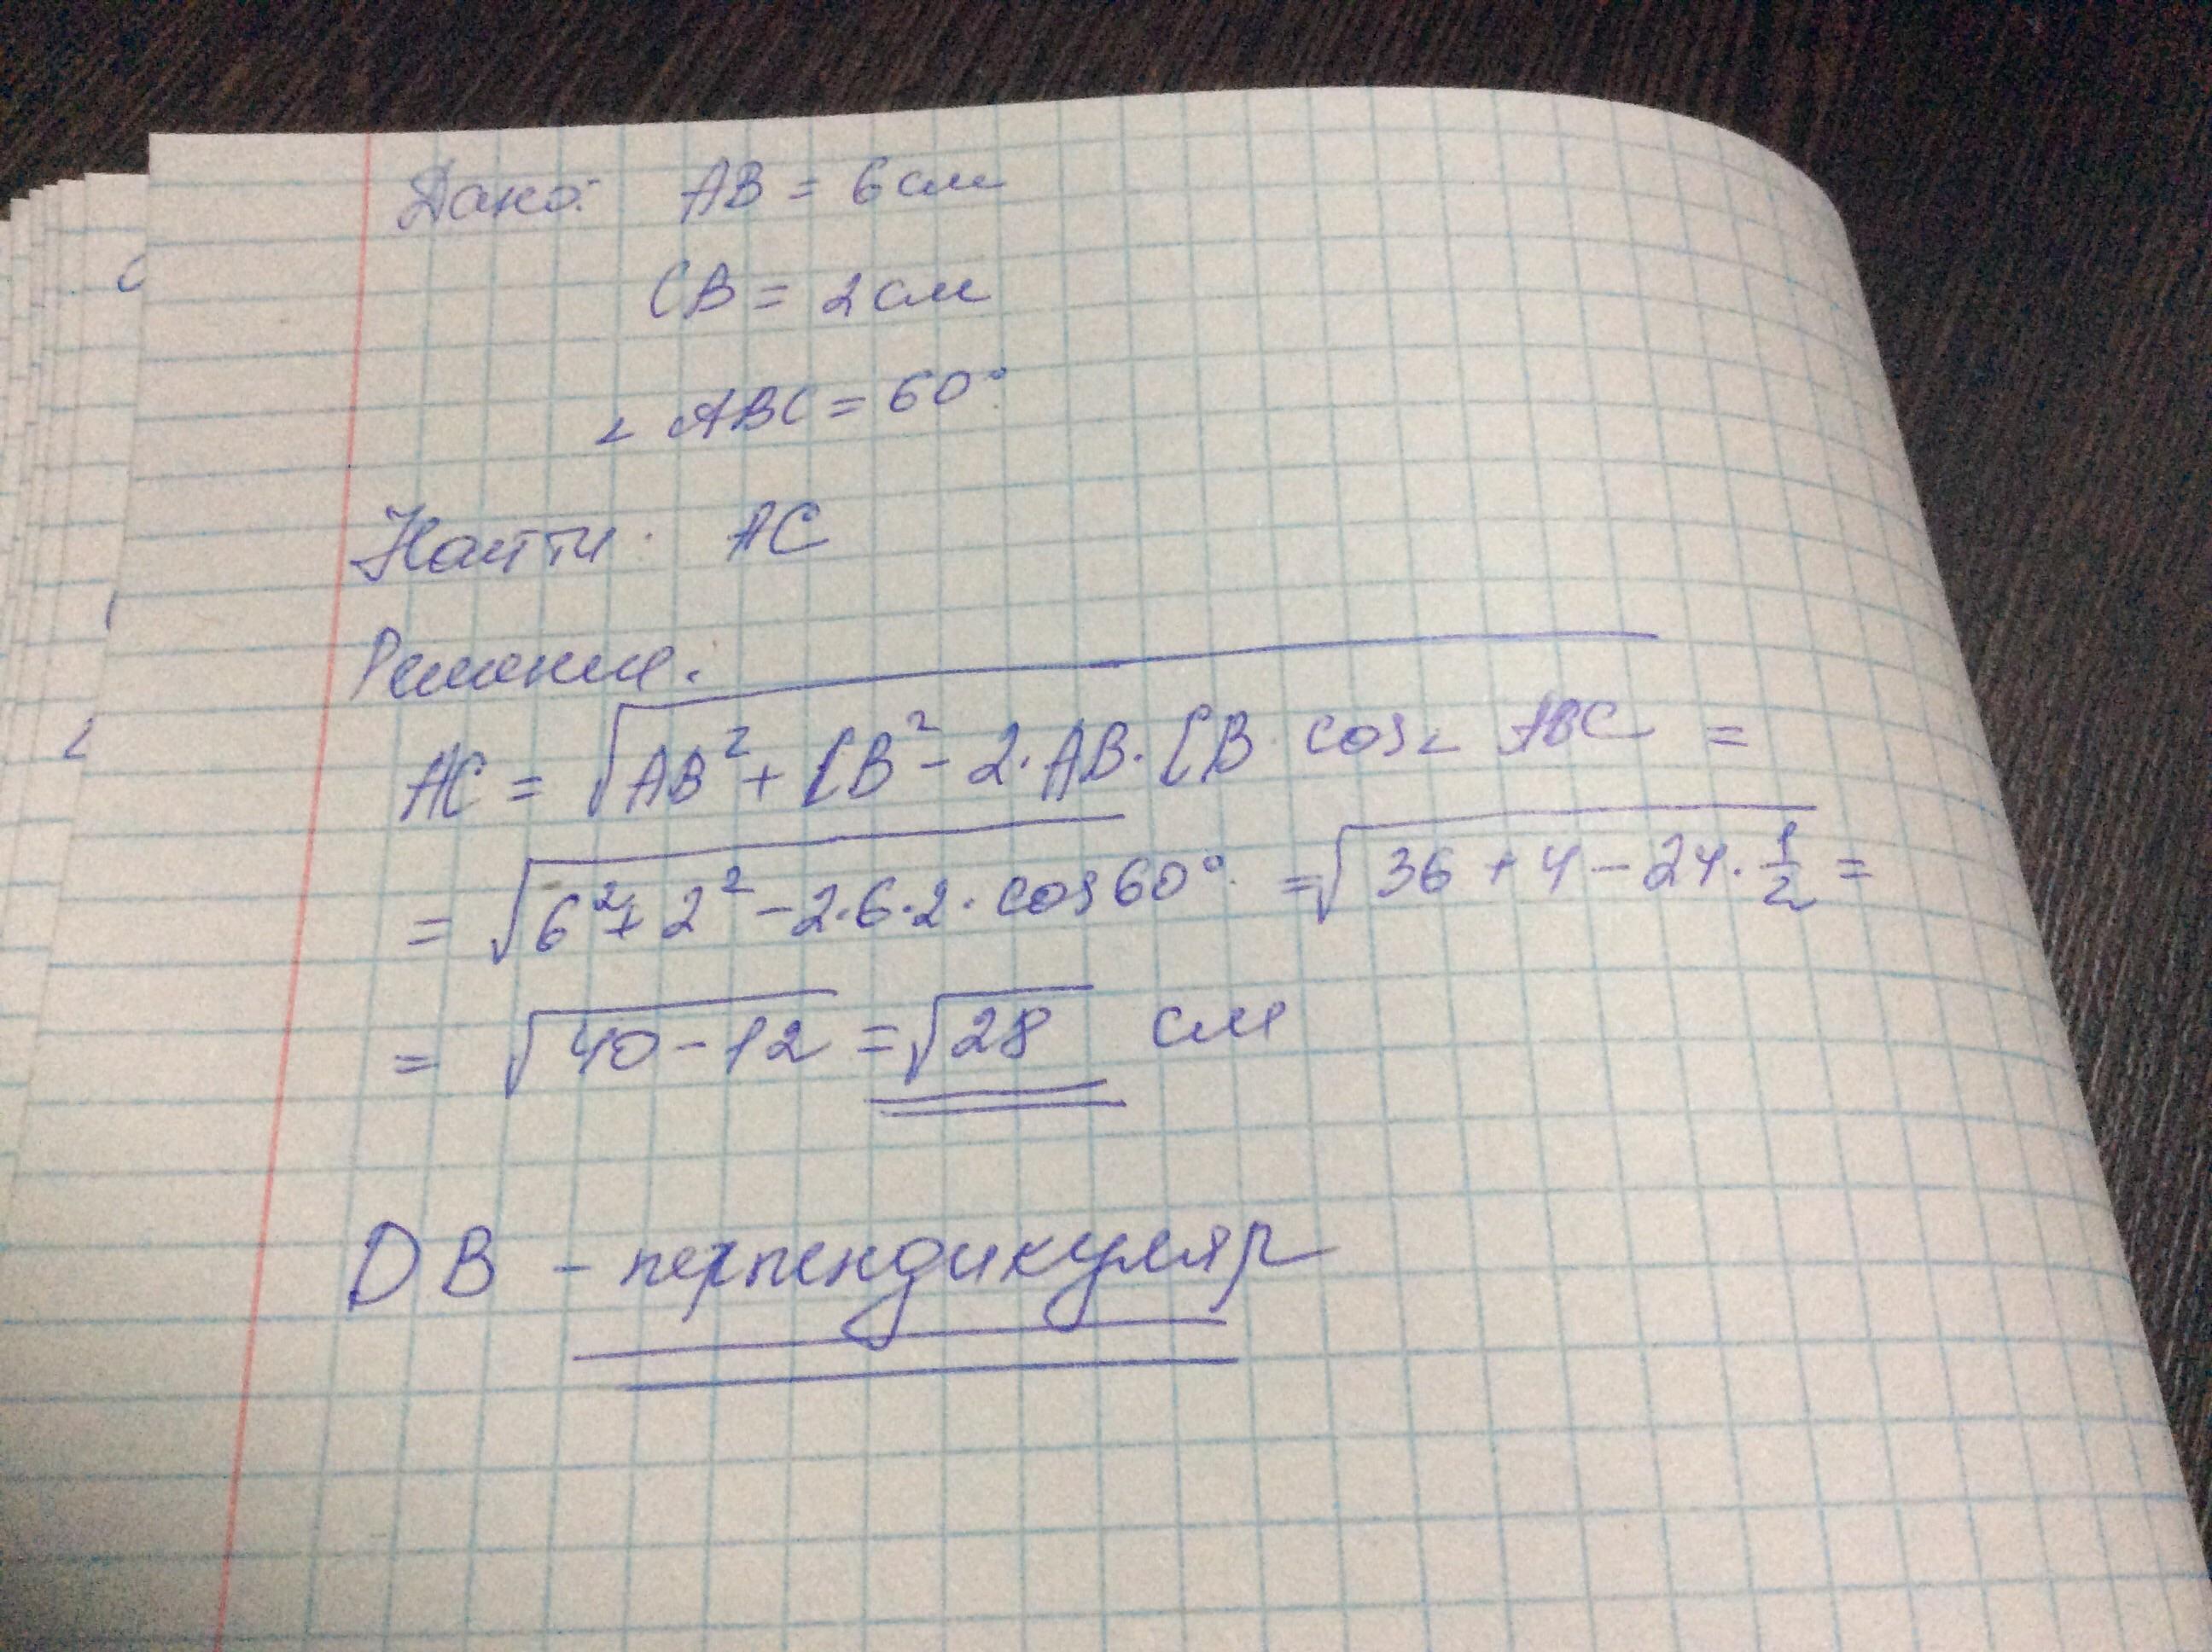 Дано: AB = 6 см
CB = 2 см
∠ ABC = 60°
Найти: AC
Решение.
AC = √(AB² + CB² - 2·AB·CB cos∠ ABC) =
= √(6² + 2² - 2·6·2·cos60°) = √(36 + 4 - 24·1/2) =
= √(40 - 12) = √28 см
DB - перпендикуляр